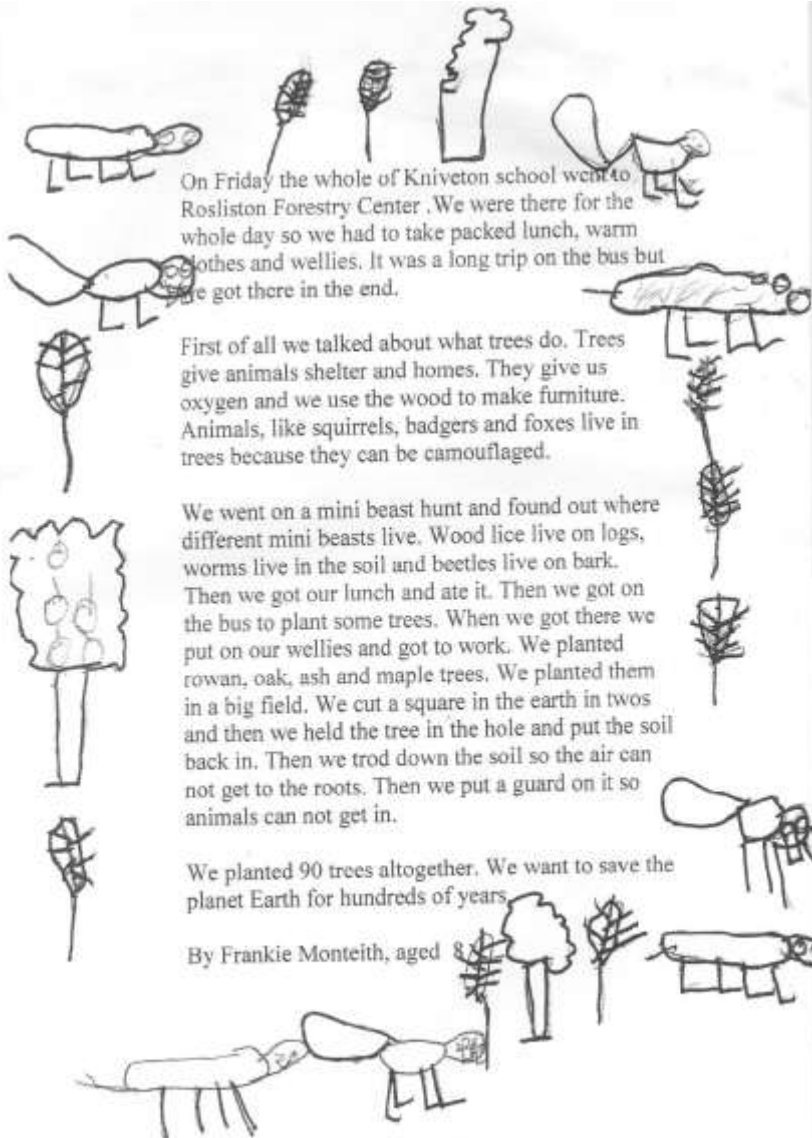 On Friday the whole of Kniveton school went to
Rosliston Forestry Center .We were there for the
whole day so we had to take packed lunch, warm
clothes and wellies. It was a long trip on the bus but
we got there in the end.
First of all we talked about what trees do. Trees
give animals shelter and homes. They give us
oxygen and we use the wood to make furniture.
Animals, like squirrels, badgers and foxes live in
trees because they can be camouflaged.
We went on a mini beast hunt and found out where
different mini beasts live. Wood lice live on logs,
worms live in the soil and beetles live on bark.
Then we got our lunch and ate it. Then we got on
the bus to plant some trees. When we got there we
put on our wellies and got to work. We planted
rowan, oak, ash and maple trees. We planted them
in a big field. We cut a square in the earth in twos
and then we held the tree in the hole and put the soil
back in. Then we trod down the soil so the air can
not get to the roots. Then we put a guard on it so
animals can not get in.
We planted 90 trees altogether. We want to save the
planet Earth for hundreds of years.
By Frankie Monteith, aged 8